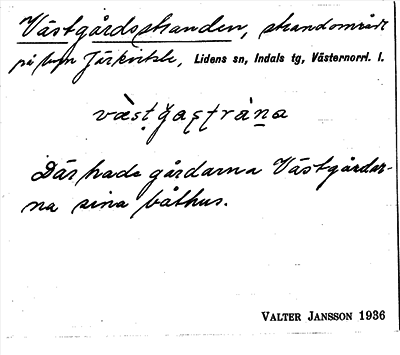 Västgårdsstranden, strandområde
på byn Järkvitsle, Lidens sn, Indals tg, Västernorrl. l.
Där hade gårdarna Västgårdar-
na sina båthus.
VALTER JANSSON 1936